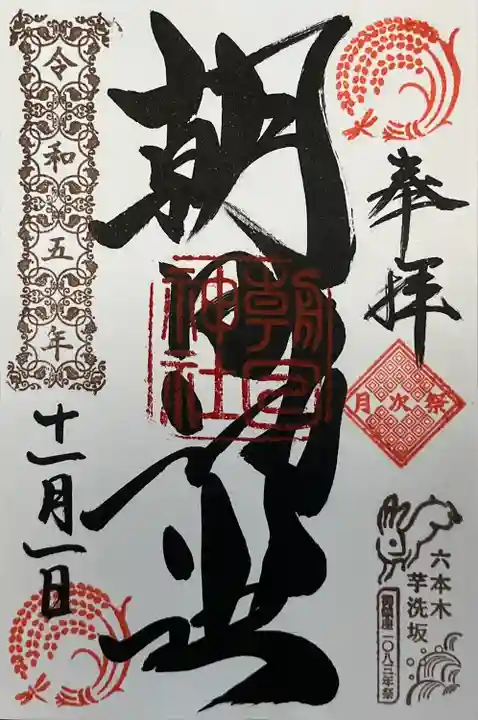 奉拝
月次祭
六本木
芋洗坂
御鎮座一〇八三年祭
朝日
朝日
神社
令和五年
十一月一日